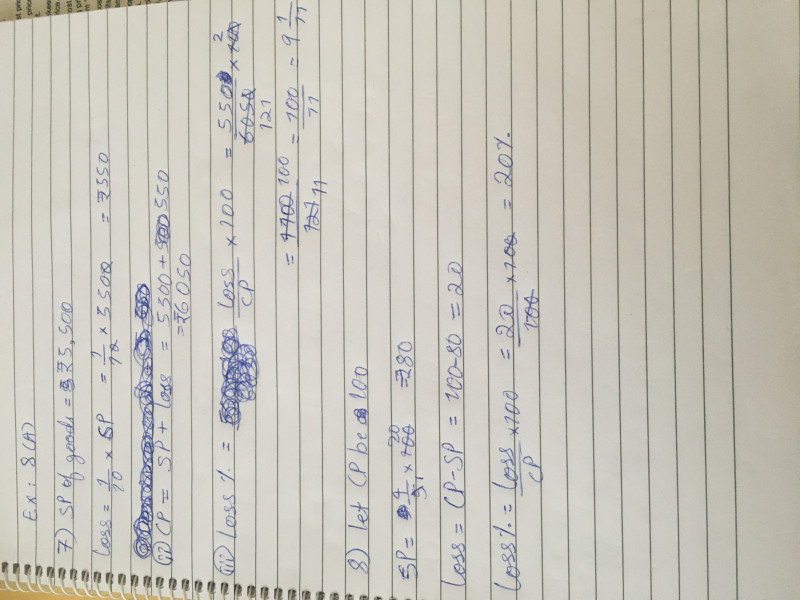 Ex: 8(A)
7) SP of goods = ₹5,500
Loss = 1/10 × SP = 1/10 × 5500 = ₹550
(ii) CP = SP + Loss = 5500 + 550
= ₹6050
(iii) Loss % = Loss/CP × 100 = 550/6050 × 100 2
121
= 1100/121 100 11 = 100/11 = 9 1/11
8) Let CP be 100
SP = 4/5 × 100 20 1 = ₹80
Loss = CP - SP = 100 - 80 = 20
Loss % = Loss/CP × 100 = 20/100 × 100 = 20%